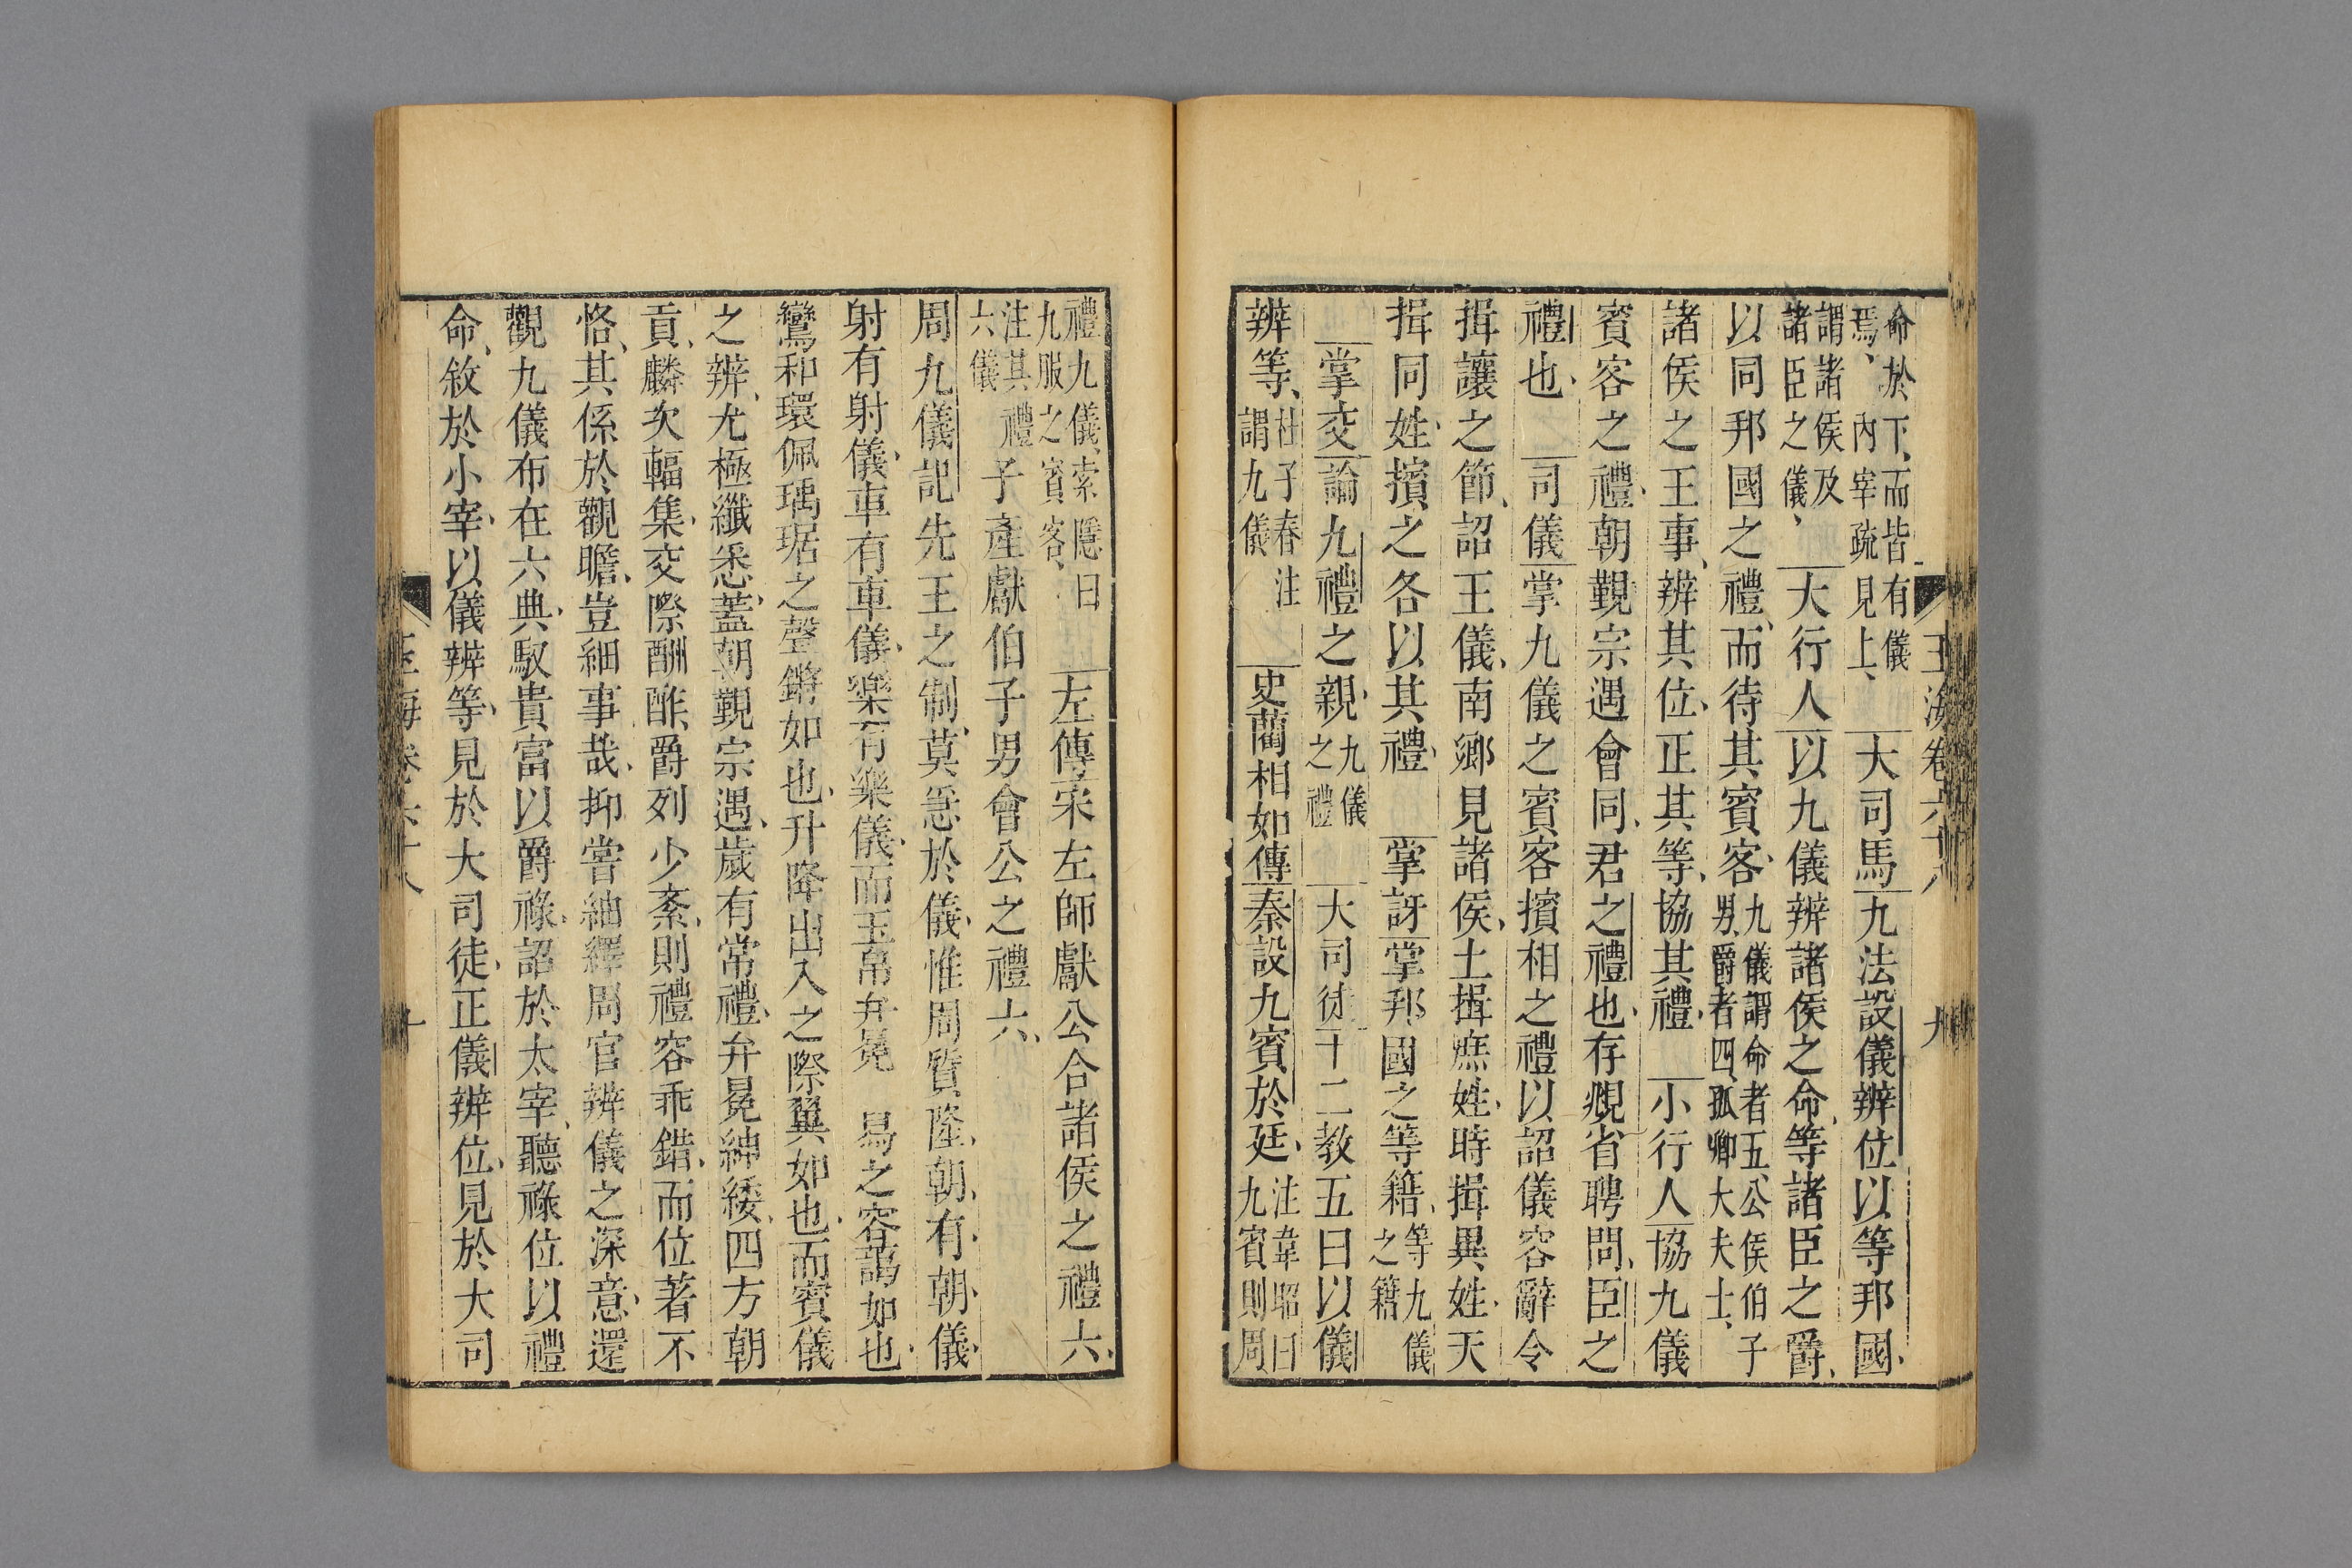 玉海卷六十八 九
命於下、而皆有儀焉、內宰疏見上、大司馬九法設儀辨位以等邦國、
謂諸侯及諸臣之儀、大行人以九儀辨諸侯之命、等諸臣之爵、
以同邦國之禮、而待其賓客、九儀謂命者五、公侯伯子男、爵者四、孤卿大夫士、
諸侯之王事、辨其位、正其等、協其禮、小行人協九儀
賓客之禮、朝覲宗遇會同、君之禮也、存覜省聘問、臣之
禮也、司儀掌九儀之賓客擯相之禮以詔儀容辭令
揖讓之節、詔王儀、南鄉見諸侯、土揖庶姓、時揖異姓、天
揖同姓、擯之各以其禮、掌訝掌邦國之等籍、等九儀之籍
掌交論九禮之親、九儀之禮大司徒十二教五曰以儀
辨等、杜子春注謂九儀史藺相如傳秦設九賓於廷、注韋昭曰九賓則周
禮九儀、索隱曰九服之賓客、左傳宋左師獻公合諸侯之禮六、
注其禮六儀子產獻伯子男會公之禮六、
周九儀記先王之制、莫㤀於儀、惟周質隆、朝、有朝儀、
射有射儀、車有車儀、樂有樂儀、而玉帛弁冕 易之容藹如也、
鸞和環佩瑀琚之聲鏘如也、升降出入之際翼如也、而賓儀
之辨、尤極纖悉、蓋朝覲宗遇、歲有常禮、弁冕紳緌、四方朝
貢、麟次輻集、交際酬酢、爵列少紊、則禮容乖錯、而位著不
恪、其係於觀瞻、豈細事哉、抑嘗紬繹周官辨儀之深意、還
觀九儀布在六典、馭貴富以爵祿、詔於太宰、聽祿位以禮
命、敘於小宰、以儀辨等、見於大司徒、正儀辨位、見於大司
玉海卷六十八 十